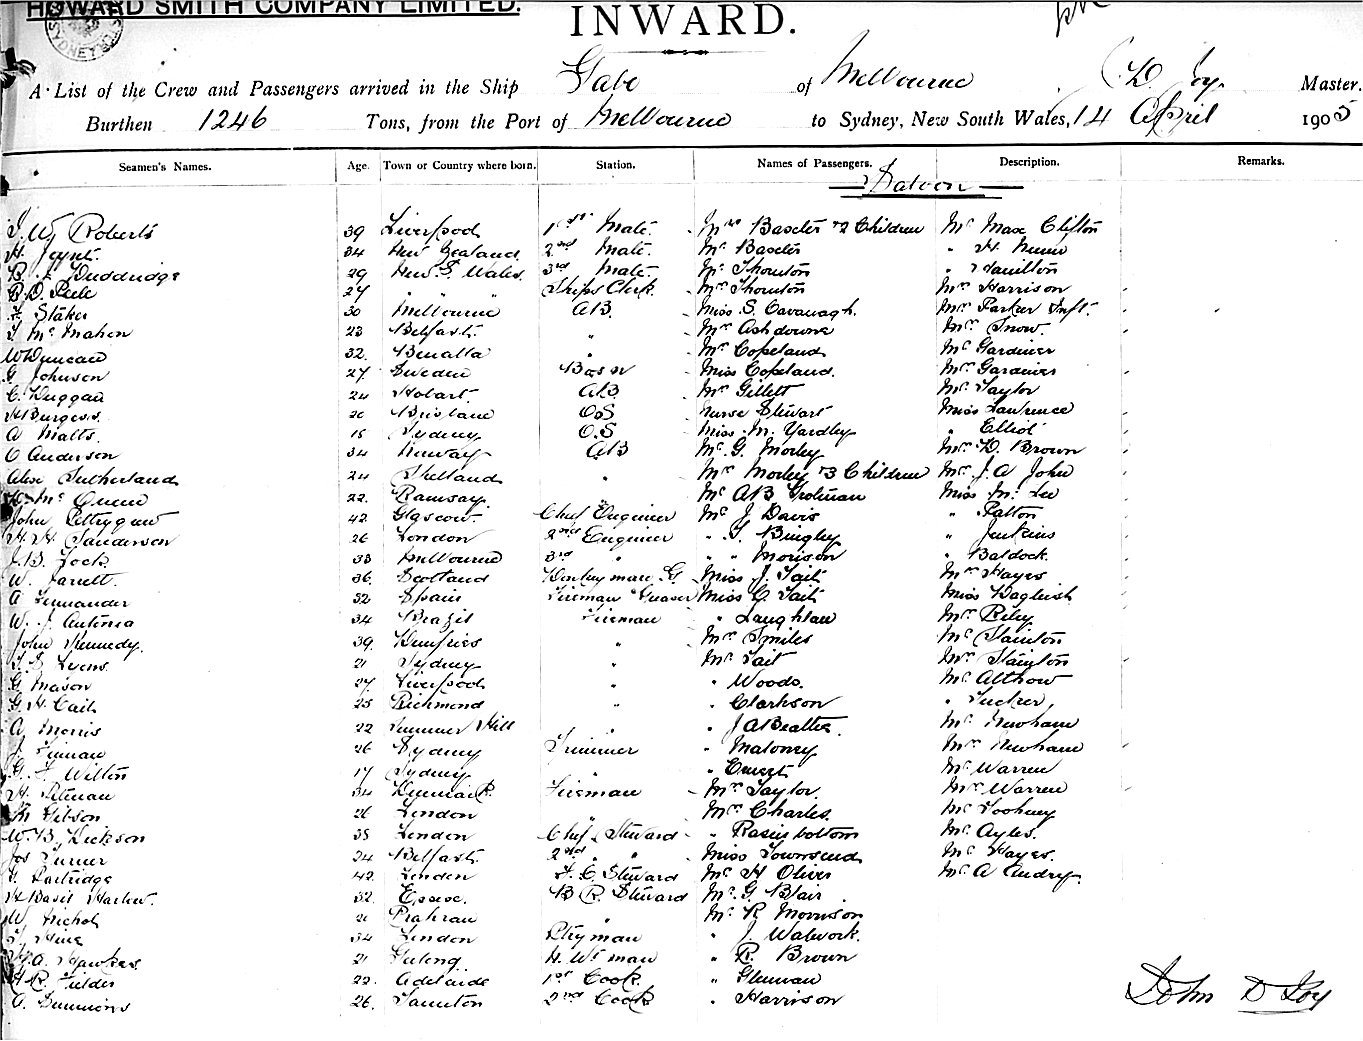 HOWARD SMITH COMPANY LIMITED.
INWARD.
A List of the Crew and Passengers arrived in the Ship Gabo of Melbourne J.D. Joy. Master.
Burthen 1246 Tons, from the Port of Melbourne to Sydney, New South Wales, 14 April 1905
Seamen's Names. Age. Town or Country where born. Station. Names of Passengers. Description. Remarks.
Saloon
J. W. Roberts 39 Liverpool 1st Mate. Mrs Baxter & 2 Children Mr Max Clifton
H. Joynt. 34 New Zealand. 2nd Mate. Mr Baxter " H.
29 New S. Wales. 3rd Mate. Mr Thornton " Hamilton
B. D. Peele 27 " " Ships Clerk. Mrs Thornton Mrs Harrison
Staker 30 Melbourne AB. Miss S. Cavanagh. Mrs Parker Inft.
J Mc Mahon 23 Belfast. " Mrs Ashdowne Mrs Snow.
W Duncan 32. Benalla " Mr Copeland Mr Gardiner
G Johnson 27 Sweden Bosn Miss Copeland. Mrs Gardiner
C. Duggan 24 Hobart. AB. Mr Gillett Mr Taylor
H Burgess. 20 Brisbane OS Nurse Stewart Miss Lawrence
A Malts. 18 Sydney O.S Miss M. Yardley " Elliot
C Anderson 34 Norway AB Mr G. Morley Mrs D. Brown
Alex Sutherland 24 Shetland " Mrs Morley & 3 Children Mr J. A John
Mc Queen 22. Ramsay " Mr AB Miss M. Lee
John Pettrygrew 42 Glascow. Chief Engineer Mr J. Davis " Patton
H. H. Sanderson 26 London 2nd Engineer " T. Bingley " Jenkins
J. B. Lock. 33 Melbourne 3rd " " " Morison " Baldock.
W. Jarrett. 36. Scotland Donkeyman G. Miss J. Tait Mrs Hayes
A 32 Spain Fireman Greaser Miss C Tait Miss Dagleish
W. J. Antonia 34 Brazil Fireman " Laughlan Mr Riley
John Kennedy. 39. Dumfries " Mrs Smiles Mr Stainton
T. S. Lyons. 21 Sydney " Mr Tait Mrs Stainton
G. Mason 27 Liverpool " " Woods. Mr Althow
G. H. Cail 25 Richmond " " Clarkson " Tucker
A Morris 22 Summer Hill " " J A Beattie. Mr Newham
J. 26 Sydney Trimmer " Maloney Mrs Newham
G. F Wilton 17 Sydney " " Ernest Mr Warren
H. Pitman 34 Denmark. Fireman Mrs Taylor Mrs Warren
Gibson 26 London " Mrs Charles. Mr Toohney
W. B. Dickson 38 London Chief Steward " Rasinbottom Mr Ayles.
Jas Turner 24 Belfast. 2nd " Miss Townsend Mr Hayes.
Partridge 42. London F. C. Steward Mr H Oliver Mr A Audry.
H Basil Harlow. 32. Essex. B R. Steward Mr G. Blair
W. Nichol 21 Prahran " Mr R Morrison
Hine 34 London Ptryman " J. Walwork.
A. Hawkes 21 Geelong " R. Brown
H R. Fielder 22. Adelaide 1st Cook. " Glennan
A. Simmons 26. Taunton 2nd Cook " Harrison
John D Joy